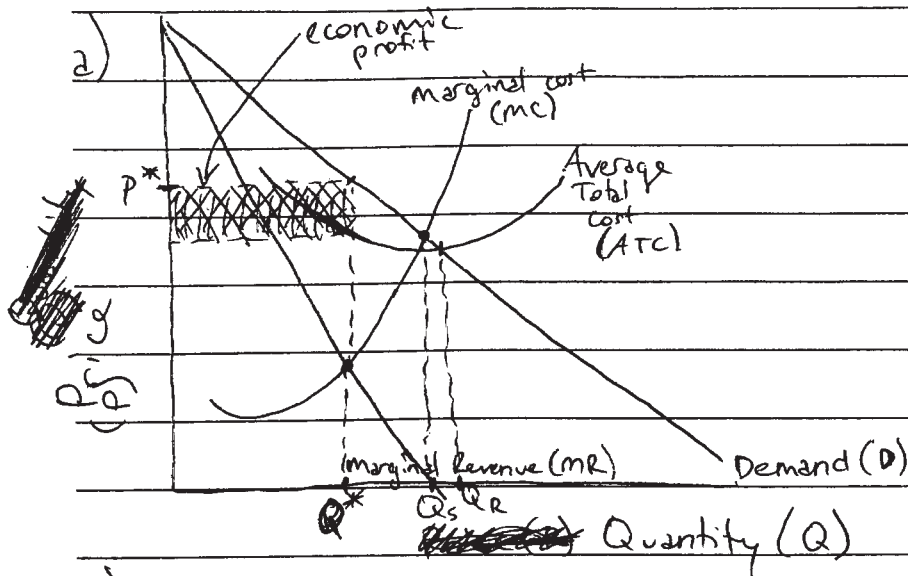 a)
economic
profit
marginal cost
(MC)
Average
Total
cost
(ATC)
P*
Price
(P)
Marginal Revenue (MR)
Demand (D)
Q*
Qs
QR
Quantity (Q)